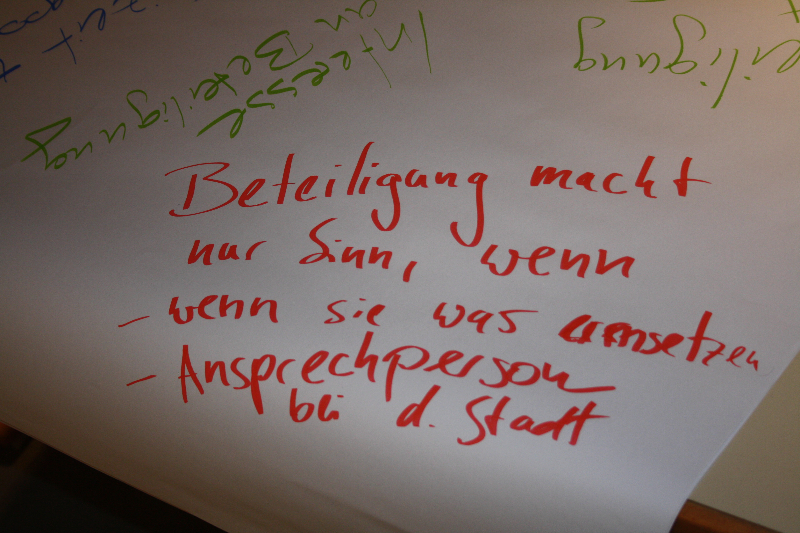 Beteiligung macht
nur Sinn, wenn
- wenn sie was umsetzen
- Ansprechperson
bei d. Stadt
Interesse
an
Beteiligung